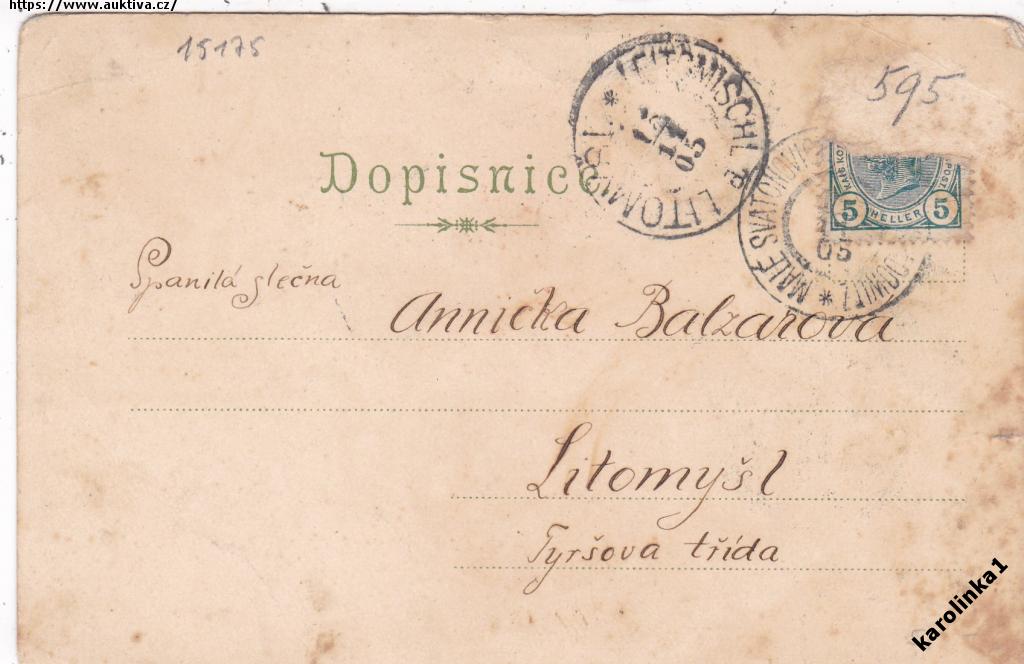 https://www.auktiva.cz/
15175
595
LEITOMISCHL * LITOMYŠL *
05
Dopisnice
5 HELLER 5
MALÉ SVATOŇOVI
05
Spanilá slečna
Annička Balzarova
Litomyšl
Tyršova třída
karolinka1